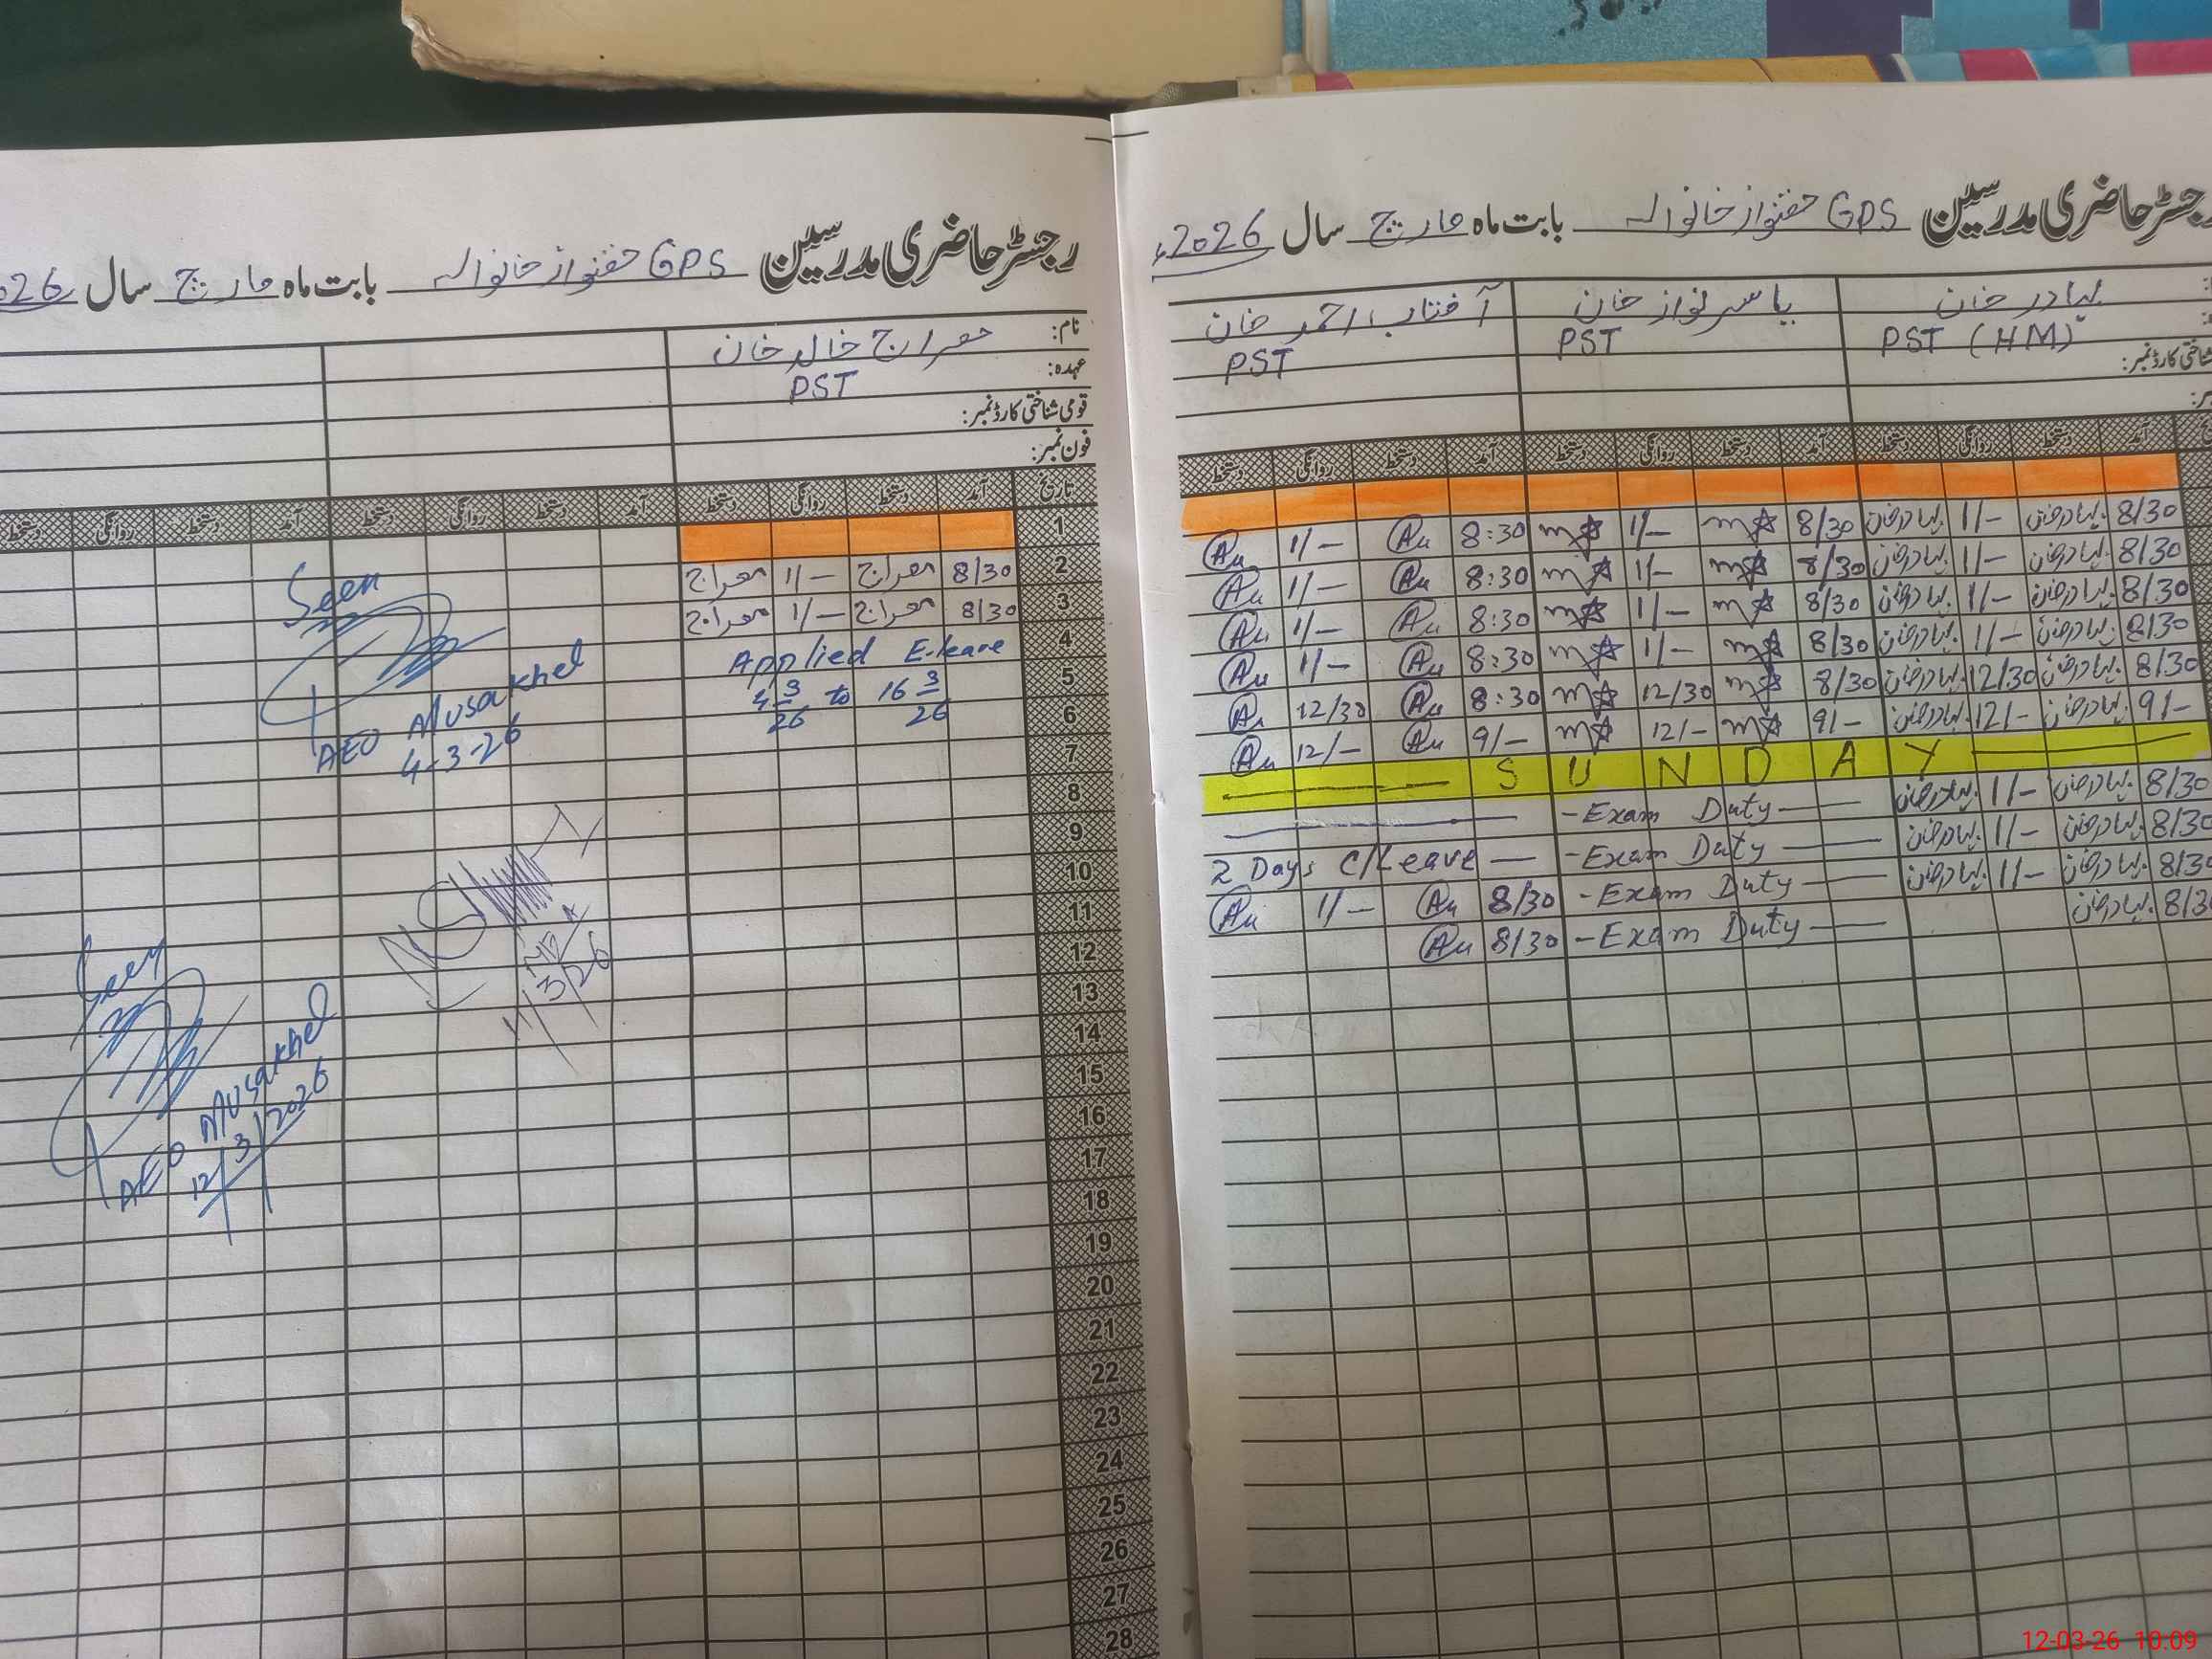 رجسٹر حاضری مدرسین GPS حقنواز خانوالہ بابت ماہ مارچ سال 2026ء
بہادر خان یاسر نواز خان آفتاب احمد خان
PST (HM) PST PST
شناختی کارڈ نمبر:
آمد دستخط روانگی دستخط آمد دستخط روانگی دستخط آمد دستخط روانگی دستخط
8/30 بہادرخان 1/- بہادرخان 8/30 1/- 8:30 Au 1/- Au
8/30 بہادرخان 1/- بہادرخان 8/30 1/- 8:30 Au 1/- Au
8/30 بہادرخان 1/- بہادرخان 8/30 1/- 8:30 Au 1/- Au
8/30 بہادرخان 1/- بہادرخان 8/30 1/- 8:30 Au 1/- Au
8/30 بہادرخان 12/30 بہادرخان 8/30 12/30 8:30 Au 12/30 Au
9/- بہادرخان 12/- بہادرخان 9/- 12/- 9/- Au 12/- Au
S U N D A Y
8/30 بہادرخان 1/- بہادرخان - Exam Duty
8/30 بہادرخان 1/- بہادرخان - Exam Duty 2 Days C/Leave
8/30 بہادرخان 1/- بہادرخان - Exam Duty 8/30 Au 1/- Au
8/30 بہادرخان - Exam Duty 8/30 Au
رجسٹر حاضری مدرسین GPS حقنواز خانوالہ بابت ماہ مارچ سال 2026
نام: معراج خالد خان
عہدہ: PST
قومی شناختی کارڈ نمبر:
فون نمبر:
تاریخ آمد دستخط روانگی دستخط آمد دستخط روانگی دستخط آمد دستخط روانگی دستخط
1
2 8/30 معراج 1/- معراج
3 8/30 معراج 1/- معراج
4 Applied E-leave
5 4 3/26 to 16 3/26
6
7
8
9
10
11
12
13
14
15
16
17
18
19
20
21
22
23
24
25
26
27
28
Seen
AEO Musakhel
4-3-26
11/3/26
Seen
AEO Musakhel
12/3/2026
12-03-26 10:09